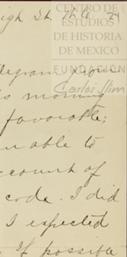 CENTRO DE
ESTUDIOS
DE HISTORIA
DE MEXICO
FUNDACIÓN
Carlos Slim
is morning
favorable;
unable to
account of
code. I did
I expected
If possible